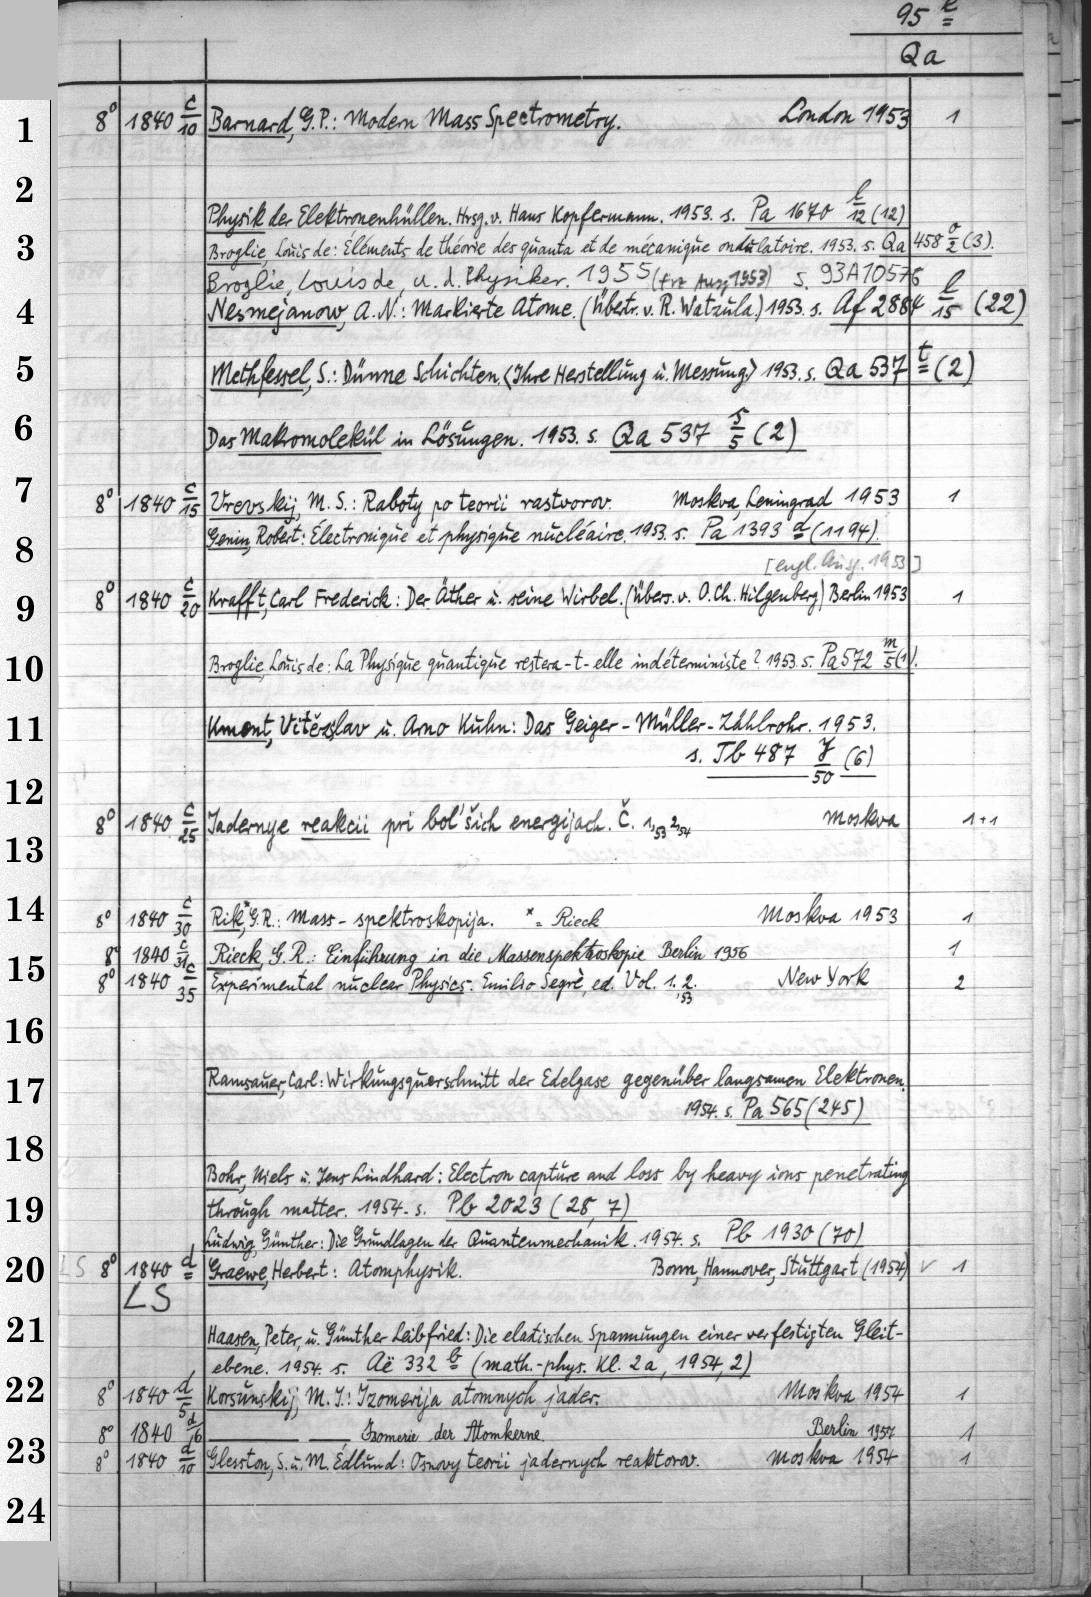 95 e
Qa
1 8° 1840 c/10 Barnard, G.P.: Modern Mass Spectrometry. London 1953 1
2
Physik der Elektronenhüllen. Hrsg. v. Hans Kopfermann. 1953. s. Pa 1670 l/12 (12)
3 Broglie, Louis de: Éléments de théorie des quanta et de mécanique ondulatoire. 1953. s. Qa 458 o/2 (3).
Broglie, Louis de, u. d. Physiker. 1955 (frz Ausg 1953) s. 93A10576
4 Nesmejanow, A.N.: Markierte Atome. (Übertr. v. R. Watzula.) 1953. s. Af 2884 l/15 (22)
5 Methfessel, S.: Dünne Schichten. <Ihre Herstellung u. Messung> 1953. s. Qa 537 t (2)
6 Das Makromolekül in Lösungen. 1953. s. Qa 537 s/5 (2)
7 8° 1840 c/15 Vrevskij, M. S.: Raboty po teorii rastvorov. Moskva, Leningrad 1953 1
Genin, Robert: Électronique et physique nucléaire. 1953. s. Pa 1393 d (1194).
8 [engl. Ausg. 1953]
9 8° 1840 c/20 Krafft, Carl Frederick: Der Äther u. seine Wirbel. (Übers. v. O.Ch. Hilgenberg) Berlin 1953 1
10 Broglie, Louis de: La Physique quantique restera-t-elle indéterministe? 1953. s. Pa 572 m/5 (1).
11 Kment, Vítězslav u. Arno Kuhn: Das Geiger-Müller-Zählrohr. 1953.
s. Tb 487 y/50 (6)
12
8° 1840 c/25 Jadernye reakcii pri bol'šich energijach. Č. 1,53 2,54 Moskva 1+1
13
14 8° 1840 c/30 Rik*, G.R.: Mass-spektroskopija. * = Rieck Moskva 1953 1
8° 1840 c/31 Rieck, G. R.: Einführung in die Massenspektroskopie Berlin 1956 1
15 8° 1840 c/35 Experimental nuclear Physics. Emilio Segrè, ed. Vol. 1. 2. ,53 New York 2
16
17 Ramsauer, Carl: Wirkungsquerschnitt der Edelgase gegenüber langsamen Elektronen.
1954. s. Pa 565 (245)
18
Bohr, Niels u. Jens Lindhard: Electron capture and loss by heavy ions penetrating
19 through matter. 1954. s. Pb 2023 (28, 7)
Ludwig, Günther: Die Grundlagen der Quantenmechanik. 1954. s. Pb 1930 (70)
20 LS 8° 1840 d Graewe, Herbert: Atomphysik. Bonn, Hannover, Stuttgart (1954) v 1
LS
21 Haasen, Peter, u. Günther Leibfried: Die elastischen Spannungen einer verfestigten Gleit-
ebene. 1954. s. Aë 332 b (math.-phys. Kl. 2a, 1954, 2)
22 8° 1840 d/5 Korsunskij, M. I.: Izomerija atomnych jader. Moskva 1954 1
8° 1840 d/6 —— — Isomerie der Atomkerne. Berlin 1957 1
23 8° 1840 d/10 Glesston, S. u. M. Édlund: Osnovy teorii jadernych reaktorov. Moskva 1954 1
24